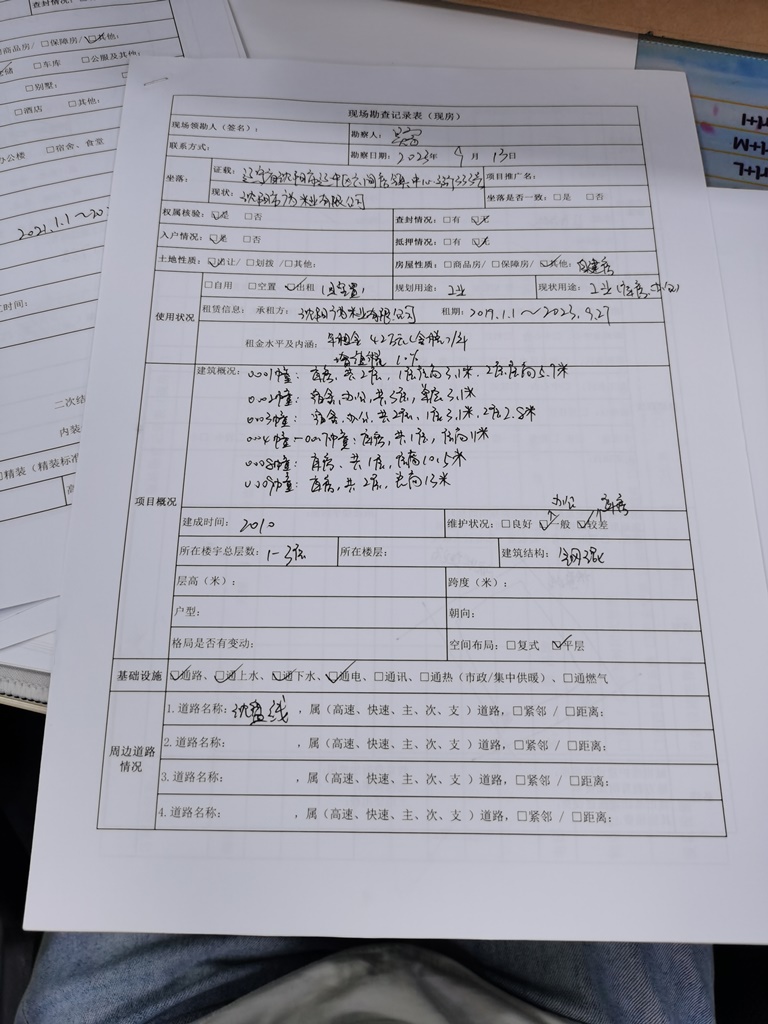 查封情况:
商品房/ □保障房/ ☑其他:
储 □车库 □公服及其他:
□别墅:
□酒店 □其他:
办公楼 □宿舍、食堂
2021.1.1~20
工时间:
二次结
内装
精装(精装标准
Ctrl+I
Ctrl+M
Ctrl+L
现场勘查记录表(现房)
现场领勘人(签名): 勘察人:
联系方式: 勘察日期: 2023年 9月 13日
坐落: 证载: 辽宁省沈阳市辽中区六间房镇 中心街33号 项目推广名:
现状: 沈阳市 米业有限公司 坐落是否一致: □是 □否
权属核验: ☑是 □否 查封情况: □有 ☑无
入户情况: ☑是 □否 抵押情况: □有 ☑无
土地性质: ☑出让/ □划拨 /□其他: 房屋性质: □商品房/ □保障房/ ☑其他: 自建房
使用状况 □自用 □空置 ☑出租 规划用途: 工业 现状用途: 工业(库房、办公)
租赁信息: 承租方: 沈阳 米业有限公司 租期: 2019.1.1~2023.9.27
租金水平及内涵: 年租金42万元(含税)/年
增值税 10%
项目概况 建筑概况: 0001幢: 库房, 共2层, 1层层高3.1米, 2层层高5.7米
0002幢: 宿舍、办公, 共3层, 单层3.1米
0003幢: 宿舍、办公, 共2层, 1层3.1米, 2层2.8米
0004幢-0007幢: 库房, 共1层, 层高 米
0008幢: 库房、共1层, 层高10.5米
0009幢: 库房, 共2层, 总高13米
建成时间: 2010 维护状况: □良好 ☑一般 ☑较差 办公 库房
所在楼宇总层数: 1-3层 所在楼层: 建筑结构: 钢混
层高(米): 跨度(米):
户型: 朝向:
格局是否有变动: 空间布局: □复式 ☑平层
基础设施 ☑通路、☑通上水、☑通下水、☑通电、□通讯、□通热(市政/集中供暖)、□通燃气
周边道路情况 1.道路名称: 沈盘线 ,属(高速、快速、主、次、支 )道路,□紧邻 / □距离:
2.道路名称: ,属(高速、快速、主、次、支 )道路,□紧邻 / □距离:
3.道路名称: ,属(高速、快速、主、次、支 )道路,□紧邻 / □距离:
4.道路名称: ,属(高速、快速、主、次、支 )道路,□紧邻 / □距离: